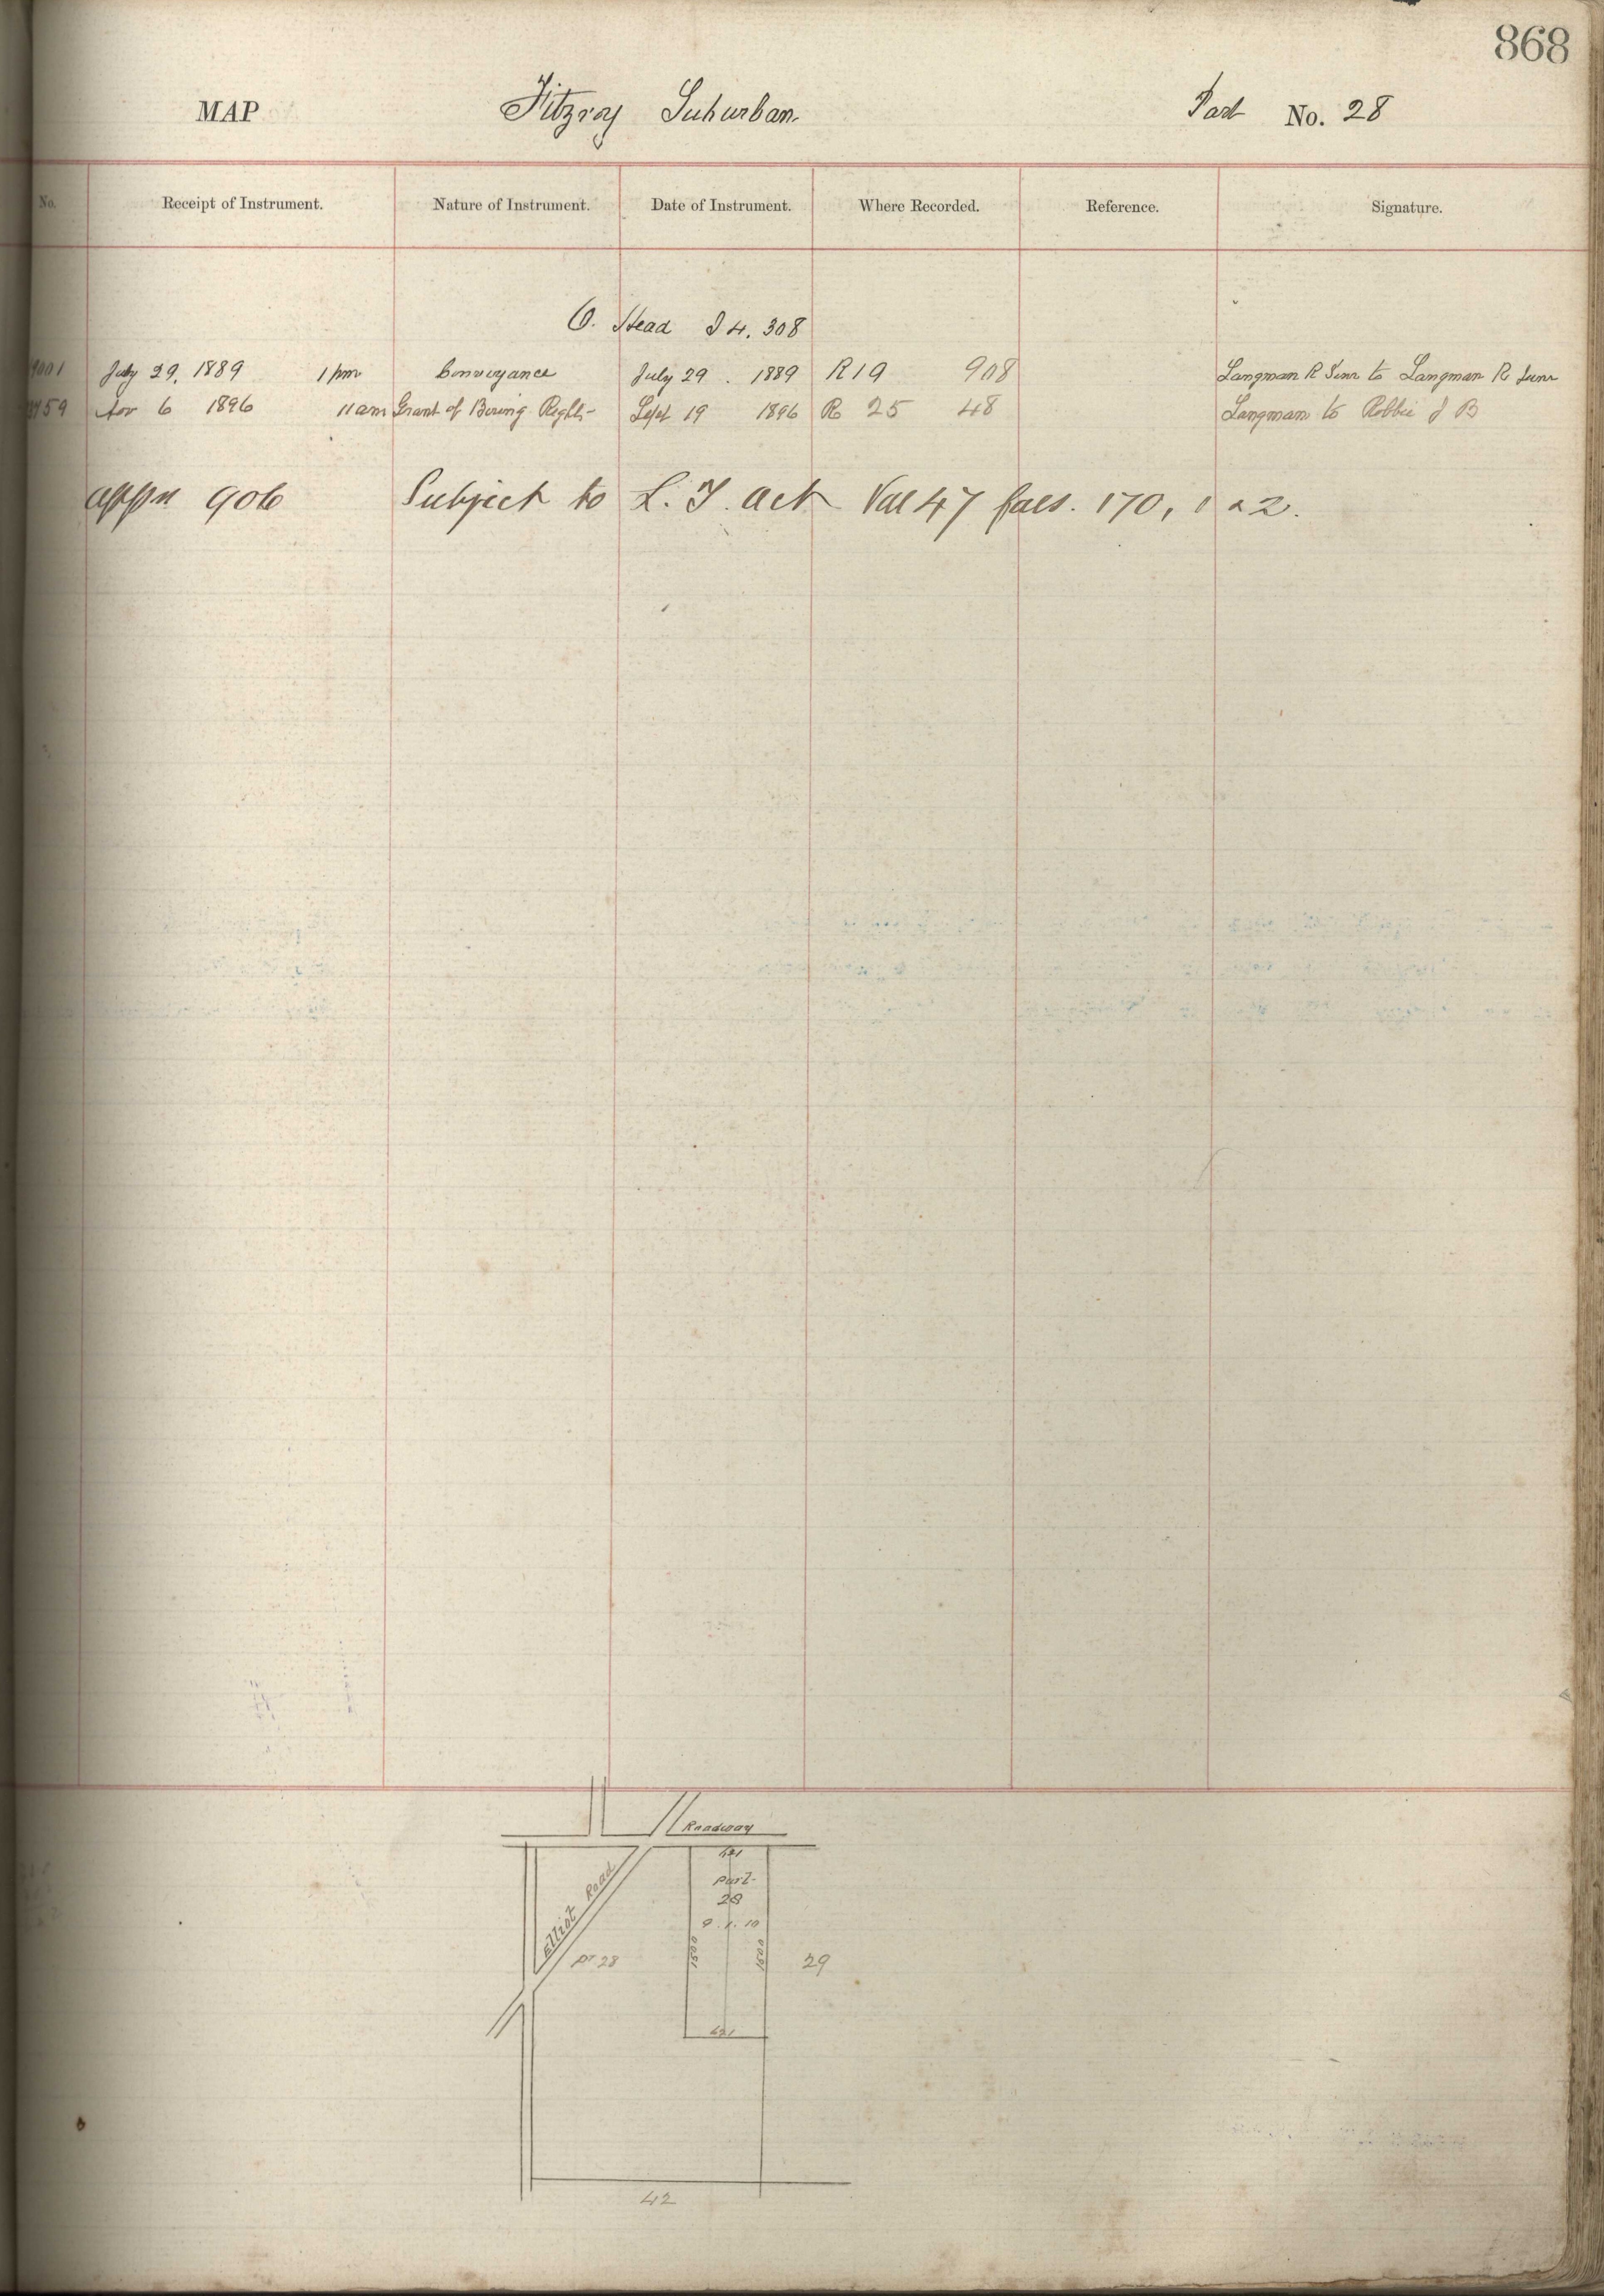 868
MAP Fitzroy Suburban. Part No. 28
No. Receipt of Instrument. Nature of Instrument. Date of Instrument. Where Recorded. Reference. Signature.
O. Head I 4. 308
July 29, 1889 1 pm Conveyance July 29. 1889 R 19 908 Langman R Senr to Langman R Junr
Nov 6 1896 11 am Grant of Boring Rights Sept 19 1896 R 25 48 Langman to Robbie J B
Appn 906 Subject to L. T. Act Vol 47 fols. 170, 1 & 2.
Roadway
621
Part
28
9. 1. 10
Elliot Road
1500
1500
pt 28
29
621
42